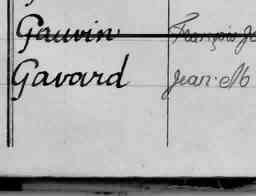 Gauvin François Je
Gavard Jean M